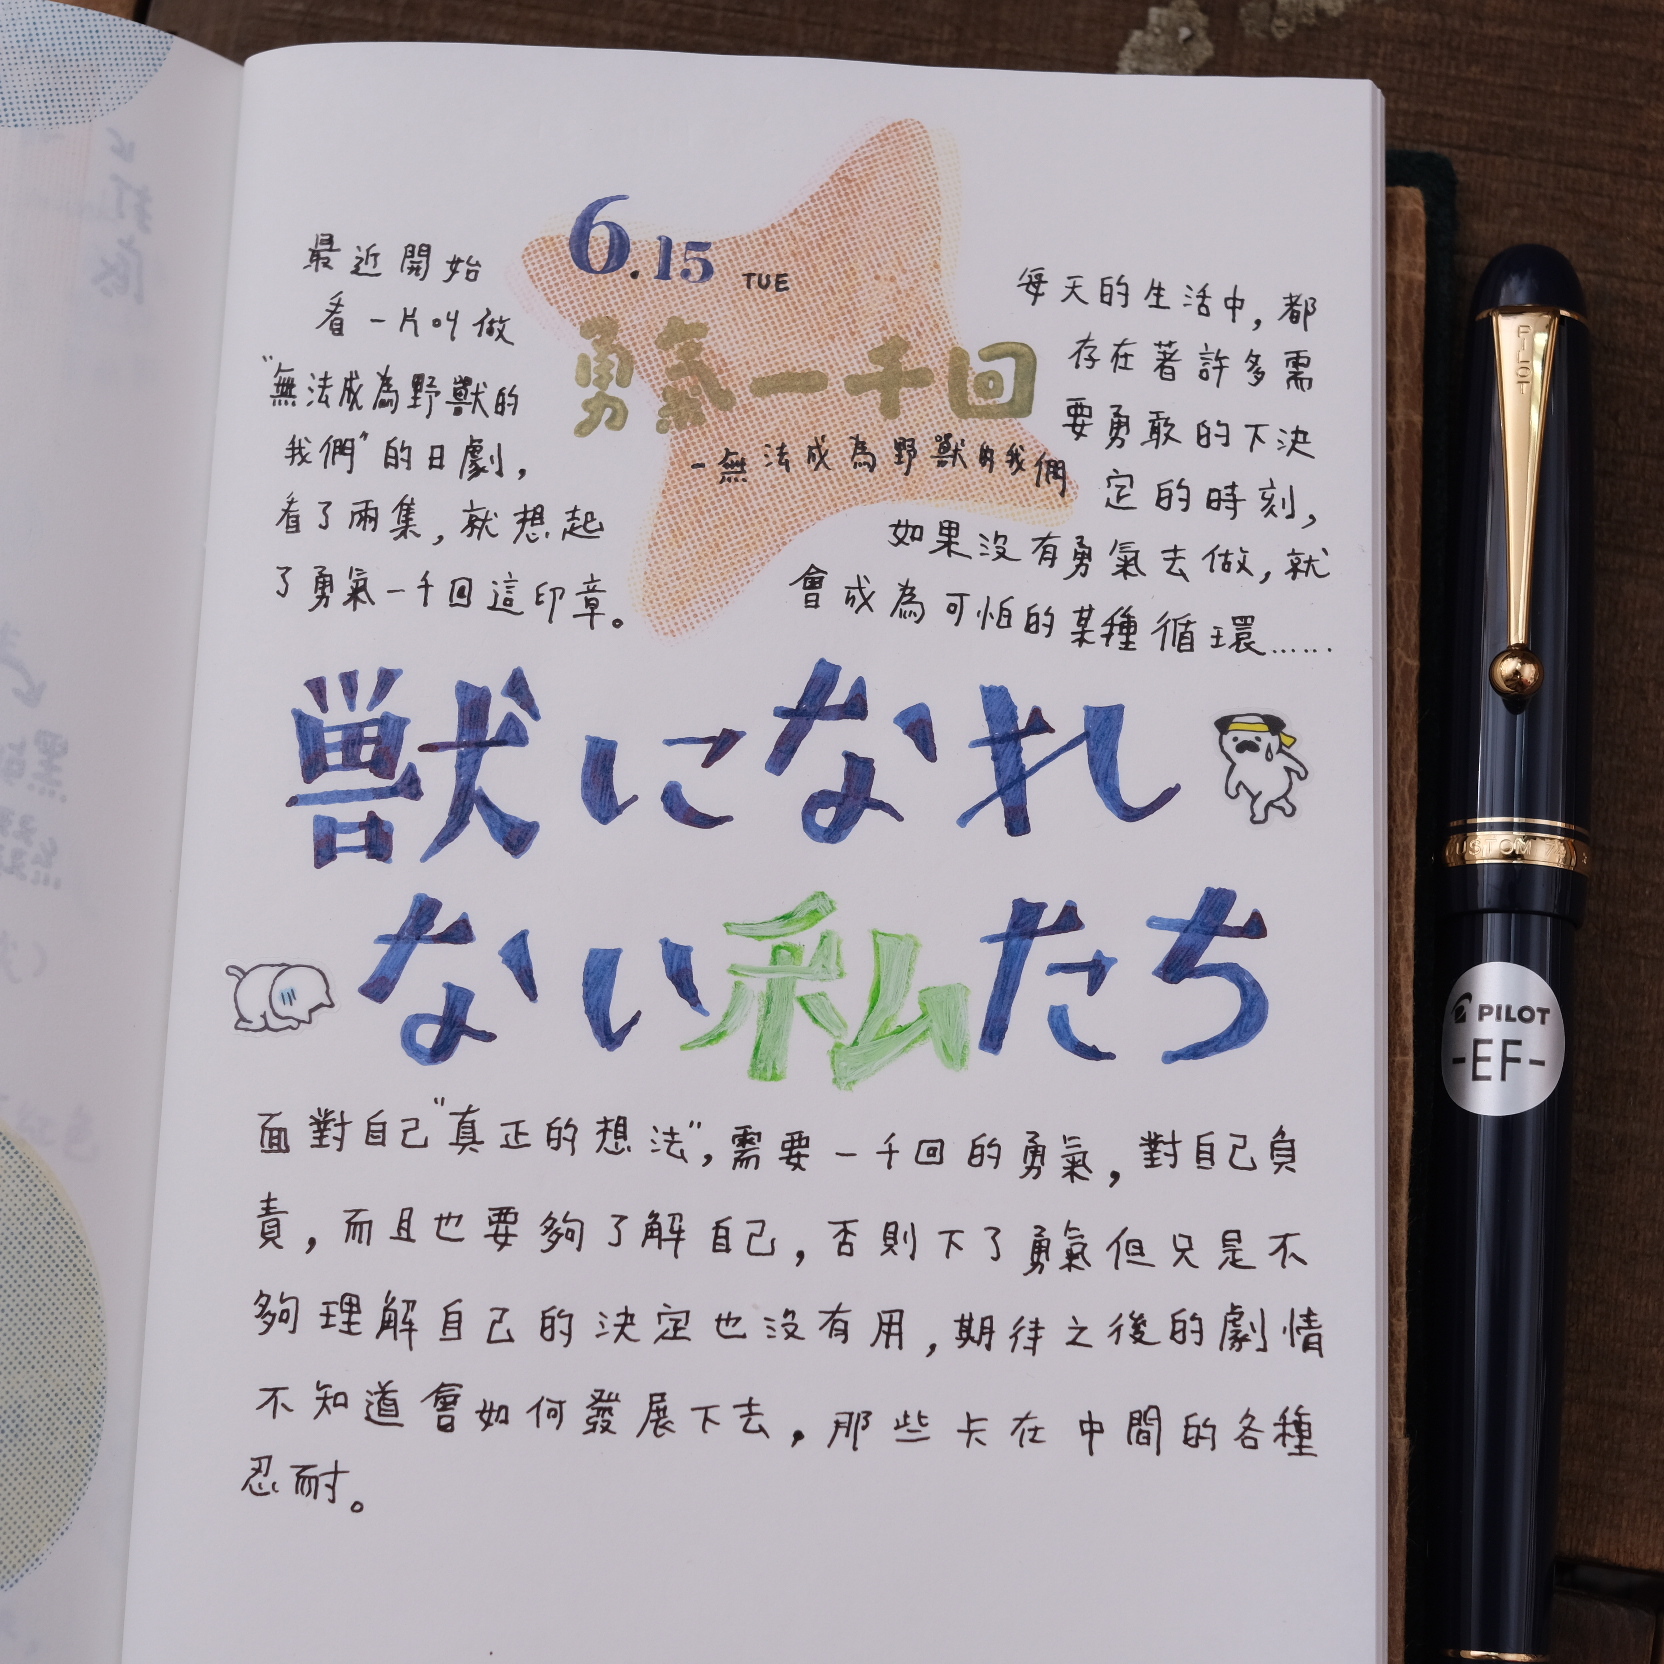 6.15 TUE
勇氣一千回
-無法成為野獸的我們
最近開始
看一片叫做
"無法成為野獸的
我們"的日劇,
看了兩集,就想起
了勇氣一千回這印章。
每天的生活中,都
存在著許多需
要勇敢的下決
定的時刻,
如果沒有勇氣去做,就
會成為可怕的某種循環......
獣になれ
ない私たち
面對自己"真正的想法",需要一千回的勇氣,對自己負
責,而且也要夠了解自己,否則下了勇氣但只是不
夠理解自己的決定也沒有用,期待之後的劇情
不知道會如何發展下去,那些卡在中間的各種
忍耐。
PILOT
PILOT
-EF-